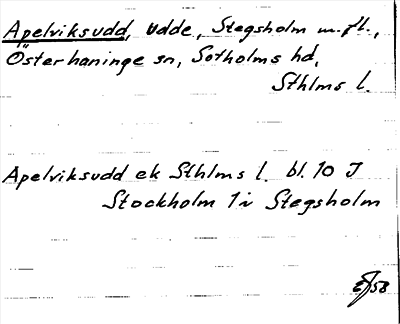 Apelviksudd, udde, Stegsholm m.fl.,
Österhaninge sn, Sotholms hd,
Sthlms l.
Apelviksudd ek Sthlms l. bl. 10 J
Stockholm 1 i Stegsholm
58